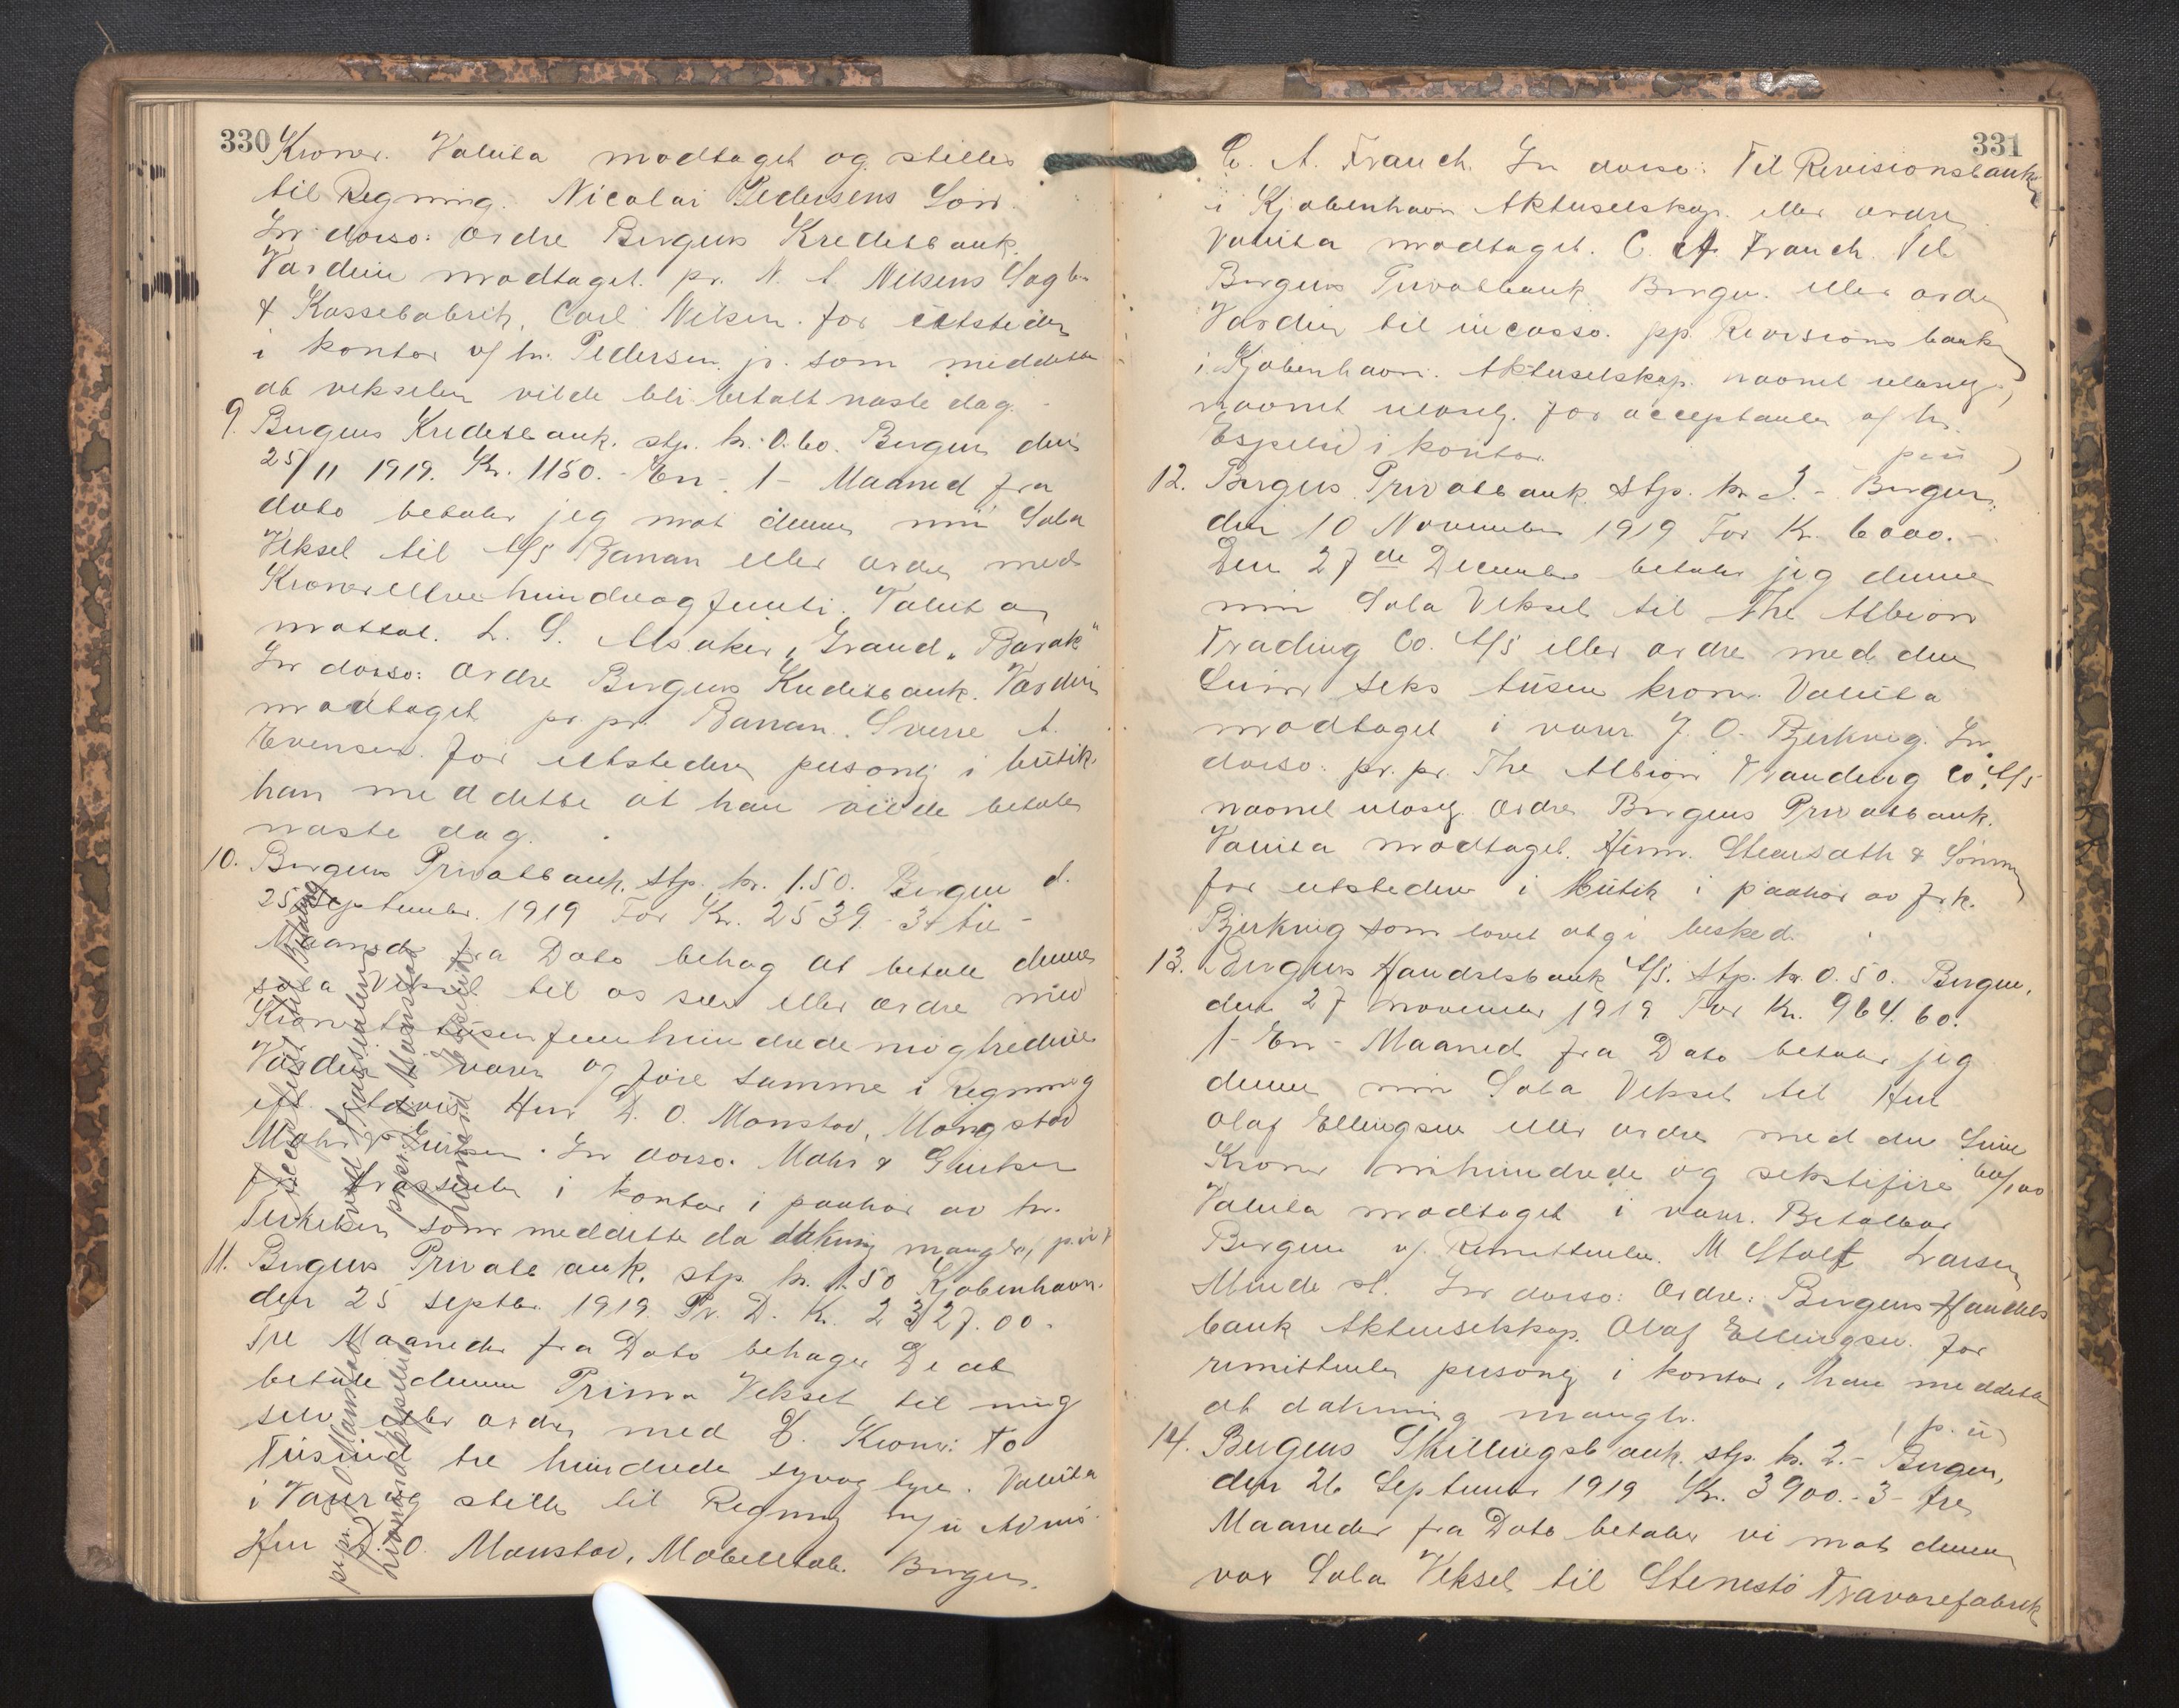 330
Kroner. Valuta modtaget og stilles
til Regning. Nicolai Pedersens Søn.
In dorso: Ordre Bergens Kreditbank.
Værdien modtaget. pr. N. A. Nilsens Sagbr.
& Kassefabrik, Carl Nilsen. for utstederen
i kontor v/ hr. Pedersen jr. som meddelte
at vekselen vilde bli betalt næste dag. -
9. Bergens Kreditbank. stp. kr. 0.60. Bergen den
25/11 1919. Kr. 1150.- En - 1 - Maaned fra
dato betaler jeg mot denne min Sola
Veksel til A/S Banan eller ordre med
Kroner ellevehundreogfemti. Valuta
mottat. L. S. Alsaker, "Grand" "Barak"
In dorso: Ordre Bergens Kreditbank. Værdien
modtaget pr. pr. Banan. Sverre A.
Evensen. for utstederen personlig i butik.
han meddelte at han vilde betale
næste dag.
10. Bergens Privatbank. stp. kr. 1.50. Bergen d.
25 September 1919 For Kr. 2539.- 3 tre -
Maaneder fra Dato behag at betale denne
sola Veksel til os selv eller ordre med
Kroner totusen femhundrede nigtredive
Værdien i varer og føre samme i Regning
eft. Advis. Herr D. O. Monstad, Mongstad
Mohr & Giertsen. In dorso. Mohr & Giertsen
for trassenten i kontor i paahør av hr.
Terkelsen som meddelte da dækning mangler, p. u.
11. Bergens Privatbank. stp. kr. 1.50 Kjøbenhavn.
den 25 septbr 1919. Pr. D. K. 2327.00.
Tre Maaneder fra Dato behager De at
betale denne Prima Veksel til mig
selv eller ordre med D. Kroner: to
Tusind tre hundrede syvogtyve. Valuta
i Varer og stilles til Regning m/u Advis.
Herr D. O. Monstad, Møbelfab. Bergen.
pr. pr. D. O. Monstad
331
C. A. Franch. In dorso: Til Revisionsbanken
i Kjøbenhavn Aktieselskap. eller ordre
Valuta modtaget. C. A. Franch. Til
Bergens Privatbank Bergen. eller ordre
Værdien til incasso. pp. Revisionsbanken
i Kjøbenhavn. Aktieselskap. navnet ulæselig,
navnet ulæselig. for acceptanten v/ hr.
Espelid i kontor.
12. Bergens Privatbank. Stp. kr. 3.- Bergen,
den 10 November 1919 For Kr. 6000.-
Den 27de December betaler jeg denne
min Sola Veksel til The Albion
Trading Co. A/S eller ordre med den
Sum seks tusen kroner. Valuta
modtaget i varer J. O. Bjerkvig. In
dorso: pr. pr. The Albion Tranding Co. A/S
navnet ulæselig. Ordre Bergens Privatbank.
Valuta modtaget. Herm. & Sønner
for utstederen i butik i paahør av frk.
Bjerkvig som lovet at gi besked.
13. Bergens Handelsbank A/S. Stp. kr. 0.50. Bergen,
den 27 november 1919 For Kr. 964.60.
1 - En - Maaned fra Dato betaler jeg
denne min Sola Veksel til Herr
Olaf Ellingsen eller ordre med den Sum
Kroner nihundrede og sekstifire 60/100
Valuta modtaget i varer. Betalbar
Bergen v/ Remittenten. M Larsen
Minde st. In dorso: Ordre: Bergens Handels
bank Aktieselskap. Olaf Ellingsen. for
remittenten personlig i kontor, han meddelte
at dækning mangler.
(p. u.)
14. Bergens Skillingsbank. stp. kr. 2.- Bergen,
den 26 September 1919 Kr. 3900.- 3 - tre
Maaneder fra Dato betaler vi mot denne
vor Sola Veksel til Stenestø Trævarefabrik